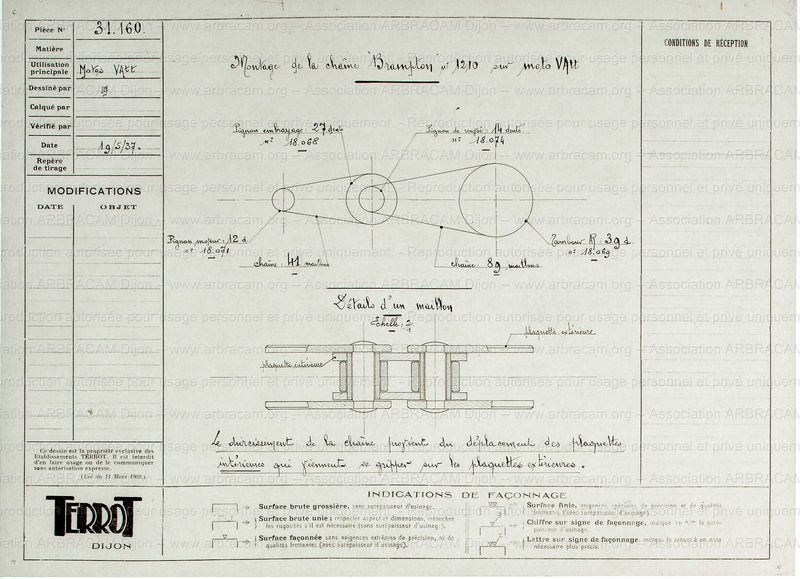 Pièce N° 31.160.
Matière
Utilisation principale Motos VAtt
Dessiné par
Calqué par
Vérifié par
Date 19/5/37.
Repère de tirage
MODIFICATIONS
DATE OBJET
Montage de la chaîne "Brampton" n° 1210 sur moto VAtt
CONDITIONS DE RÉCEPTION
Pignon embrayage : 27 dents
n° 18.068
Pignon de renvoi : 14 dents
n° 18.074
Pignon moteur : 12 d
n° 18.071
chaîne : 41 maillons
chaîne : 89 maillons
Tambour R : 39 d.
n° 18.069
Détails d'un maillon
Echelle : 2/1
plaquette extérieure
plaquette intérieure
Le durcissement de la chaîne provient du déplacement des plaquettes
intérieures qui viennent se gripper sur les plaquettes extérieures.
Ce dessin est la propriété exclusive des
Etablissements TERROT. Il est interdit
d'en faire usage ou de le communiquer
sans autorisation expresse.
(Loi du 11 Mars 1902.)
TERROT
DIJON
INDICATIONS DE FAÇONNAGE
Surface brute grossière, sans surépaisseur d'usinage.
Surface brute unie ; respecter aspect et dimensions, retoucher
les rugosités s'il est nécessaire (sans surépaisseur d'usinage).
Surface façonnée sans exigences extrêmes de précision, ni de
qualités frottantes (avec surépaisseur d'usinage).
Surface finie, exigences spéciales de précision et de qualités
frottantes (avec surépaisseur d'usinage).
Chiffre sur signe de façonnage, indique en "/" la surépaisseur d'usinage.
Lettre sur signe de façonnage, indique le renvoi à un texte
nécessaire plus précis.
www.arbracam.org – Association ARBRACAM Dijon – Reproduction autorisée pour usage personnel et privé uniquement